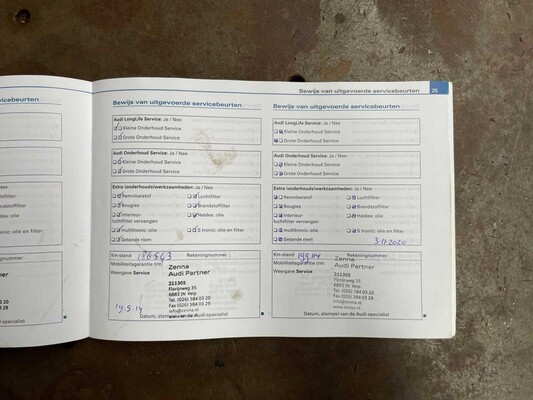 servicebeurten
Bewijs van uitgevoerde servicebeurten
25
Bewijs van uitgevoerde servicebeurten
Audi LongLife Service: Ja / Nee
Kleine Onderhoud Service
Grote Onderhoud Service
Audi Onderhoud Service: Ja / Nee
Kleine Onderhoud Service
Grote Onderhoud Service
Extra (onderhouds)werkzaamheden: Ja / Nee
Remvloeistof
Luchtfilter
Bougies
Brandstoffilter
Interieur-
luchtfilter vervangen
Haldex: olie
multitronic: olie
S tronic: olie en filter
Getande riem
Km-stand
Rekeningnummer
Mobiliteitsgarantie t/m:
Weergave Service
Zenna
Audi Partner
211305
Florijnweg 35
6883 JN Velp
Tel. (026) 384 03 20
Fax (026) 384 03 29
info@zenna.nl
19.5.14
Datum, stempel van de Audi-specialist
Bewijs van uitgevoerde servicebeurten
Audi LongLife Service: Ja / Nee
Kleine Onderhoud Service
Grote Onderhoud Service
Audi Onderhoud Service: Ja / Nee
Kleine Onderhoud Service
Grote Onderhoud Service
Extra (onderhouds)werkzaamheden: Ja / Nee
Remvloeistof
Luchtfilter
Bougies
Brandstoffilter
Interieur-
luchtfilter vervangen
Haldex: olie
multitronic: olie
S tronic: olie en filter
Getande riem
3-11-2020
Km-stand
Rekeningnummer
Mobiliteitsgarantie t/m:
Weergave Service
Zenna
Audi Partner
211305
Florijnweg 35
6883 JN Velp
Tel. (026) 384 03 20
Fax (026) 384 03 29
info@zenna.nl
www.zenna.nl
Datum, stempel van de Audi-specialist